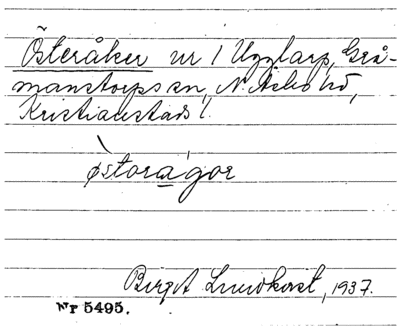 Österåker nr 1 Ugglarp, Grå-
manstorps sn, N. Åsbo hd,
Kristianstads l.
østoragor
Birgit Lundkvist, 1937.
Nr 5495.